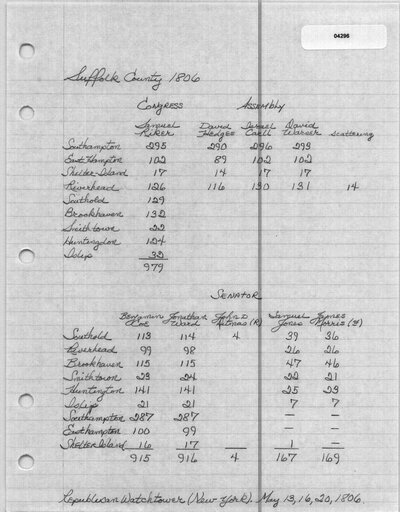 04296
Suffolk County 1806
Congress Assembly
Samuel Riker David Hedges Israel Carll David Warner Scattering
Southampton 295 290 296 293
East Hampton 102 89 102 102
Shelter Island 17 14 17 17
Riverhead 126 116 130 131 14
Southold 129
Brookhaven 132
Smithtown 22
Huntingdon 124
Islip 32
979
Senator
Benjamin Coe Jonathan Ward John D (R) Samuel Jones James Morris (F)
Southold 113 114 4 39 36
Riverhead 99 98 26 26
Brookhaven 115 115 47 46
Smithtown 23 24 22 21
Huntington 141 141 25 23
Islip 21 21 7 7
Southampton 287 287 — —
Easthampton 100 99 — —
Shelter Island 16 17 1 —
915 916 4 167 169
Republican Watchtower (New York). May 13, 16, 20, 1806.